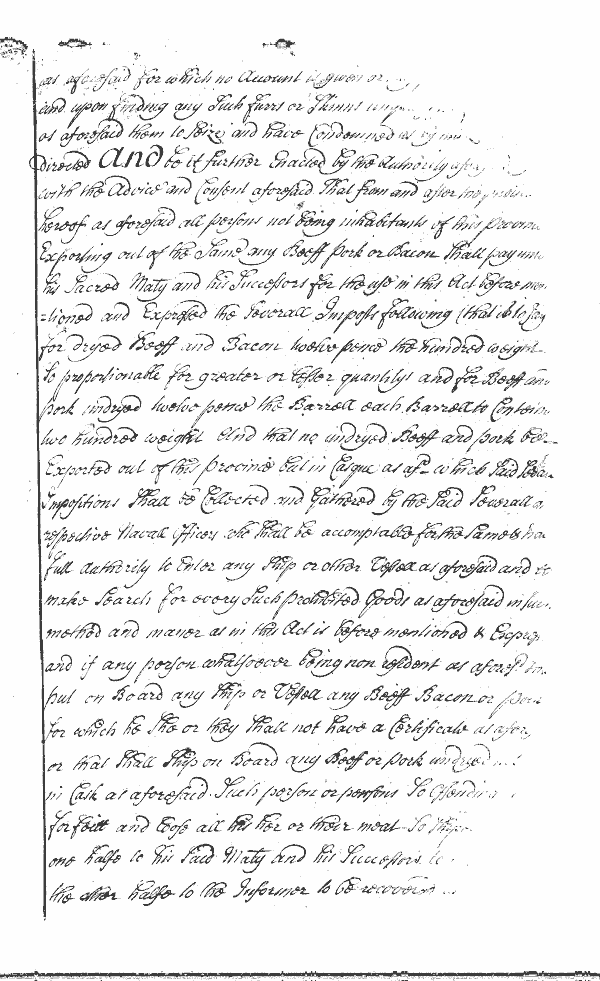 as aforesaid for which no Account is given or
and upon finding any Such furrs or Skinns
as aforesaid them to Seize and have Condemned as
directed And be it further Enacted by the Authority
with the Advice and Consent aforesaid That from and after the
hereof as aforesaid all persons not being inhabitants of this Province
Exporting out of the Same any Beeff Pork or Bacon Shall pay unto
his Sacred Maty and his Successors for the use in this Act before men
-tioned and Expressed the Severall Imposts following (that is to Say
for dryed Beeff and Bacon twelve pence the hundred weight
So proportionable for greater or lesser quantitys and for Beeff and
pork undryed twelve pence the Barrell each Barrell to Contein
two hundred weight And that no undryed Beeff and pork bee
Exported out of this Province but in Casque as afd which Said
Impositions Shall be Collected and Gathered by the Said Severall
respective Navall Officers who Shall be accomptable for the Same &
full Authority to Enter any Ship or other Vessell as aforesaid and to
make Search for every Such prohibited Goods as aforesaid in Such
method and maner as in this Act is before mentioned &
and if any person whatsoever being non resident as aforesd
put on Board any Ship or Vessell any Beeff Bacon or pork
for which he She or they Shall not have a Certificate as
or that Shall Ship on Board any Beeff or pork undryed
in Cask as aforesaid Such person or persons So Offending
forfeitt and loose all his her or their meat So
one halfe to his Said Maty and his Successors
the other halfe to the Informer to be recovered